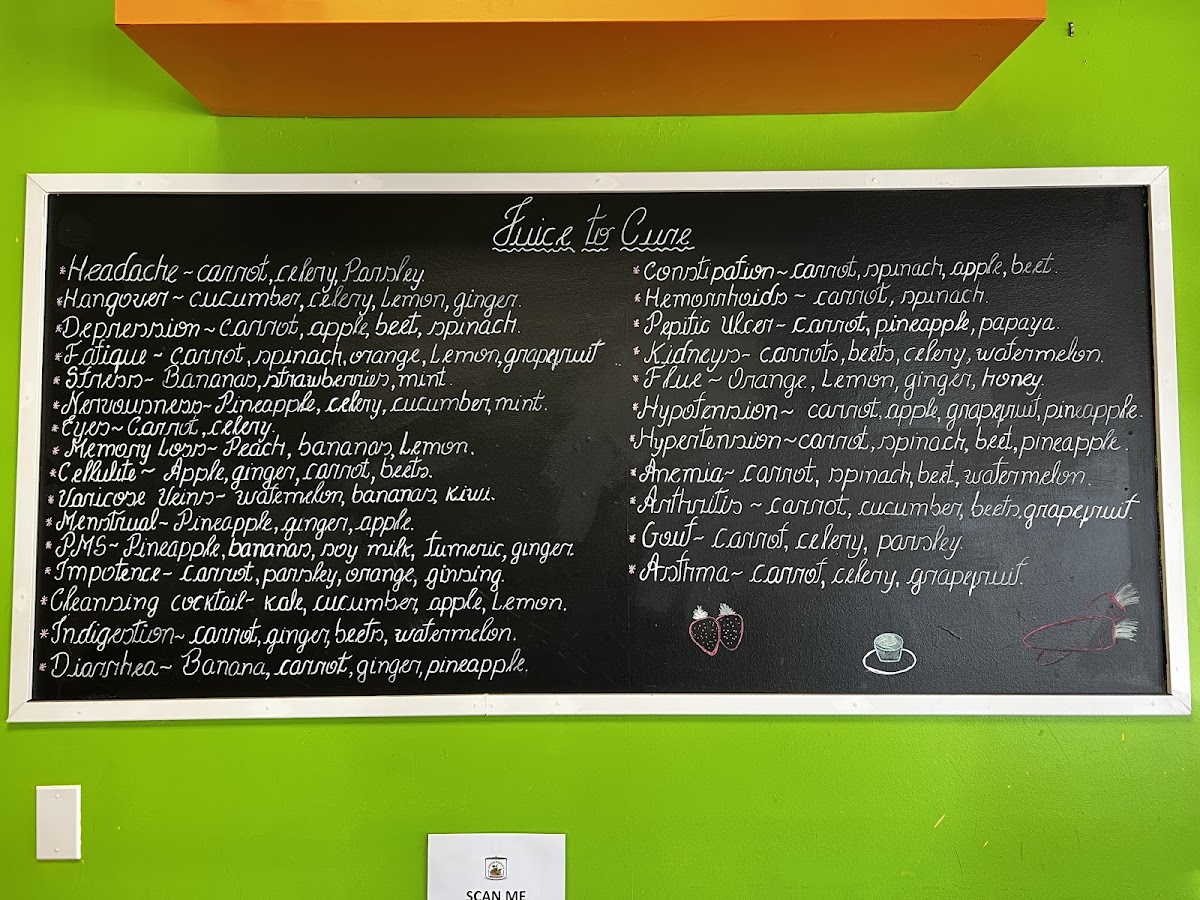 Juice to Cure
*Headache~carrot, celery, Parsley.
*Hangover~cucumber, celery, Lemon, ginger.
*Depression~carrot, apple, beet, spinach.
*Fatique~carrot, spinach, orange, Lemon, grapefruit
*Stress~Bananas, strawberries, mint.
*Nervousness~Pineapple, celery, cucumber, mint.
*Eyes~Carrot, celery.
*Memory Loss~Peach, bananas, Lemon.
*Cellulite~Apple, ginger, carrot, beets.
*Varicose Veins~watemelon, bananas, kiwi.
*Menstrual~Pineapple, ginger, apple.
*PMS~Pineapple, bananas, soy milk, tumeric, ginger.
*Impotence~carrot, parsley, orange, ginsing.
*Cleansing cocktail~kale, cucumber, apple, Lemon.
*Indigestion~carrot, ginger, beets, watermelon.
*Diarrhea~Banana, carrot, ginger, pineapple.
*Constipation~carrot, spinach, apple, beet.
*Hemorrhoids~carrot, spinach.
*Peptic Ulcer~carrot, pineapple, papaya.
*Kidneys~carrots, beets, celery, watermelon.
*Flue~Orange, Lemon, ginger, honey.
*Hypotension~carrot, apple, grapefruit, pineapple.
*Hypertension~carrot, spinach, beet, pineapple.
*Anemia~carrot, spinach, beet, watermelon.
*Arthritis~carrot, cucumber, beets, grapefruit.
*Gout~carrot, celery, parsley.
*Asthma~carrot, celery, grapefruit.
SCAN ME